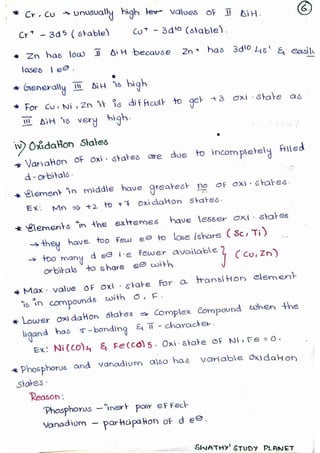 * Cr, Cu → unusually high values of II ΔiH.
6
Cr⁺ - 3d5 (stable) Cu⁺ - 3d10 (stable).
* Zn has low II ΔiH because Zn⁺ has 3d10 4s¹ & easily
loses 1 e⊖.
* Generally III ΔiH is high
* For Cu, Ni, Zn it is difficult to get +3 oxi. state as
III ΔiH is very high.
iv) Oxidation States
* Variation of oxi. states are due to incompletely filled
d-orbitals.
* Element in middle have greatest no of oxi. states.
Ex: Mn ⇒ +2 to +7 oxidation states.
* Elements in the extremes have lesser oxi. states
→ they have too few e⊖ to lose/share (Sc, Ti)
→ too many d e⊖ i.e fewer available } (Cu, Zn)
orbitals to share e⊖ with
* Max. value of oxi. state for a transition element
is in compounds with O, F.
* Lower oxidation states ⇒ Complex Compound when the
ligand has σ-bonding & π-character.
Ex: Ni(CO)4 & Fe(CO)5. Oxi. state of Ni, Fe = 0.
* Phosphorus and vanadium also has variable oxidation
states.
Reason:
Phosphorus - "inert pair effect
Vanadium - participation of d e⊖.
SWATHY' STUDY PLANET